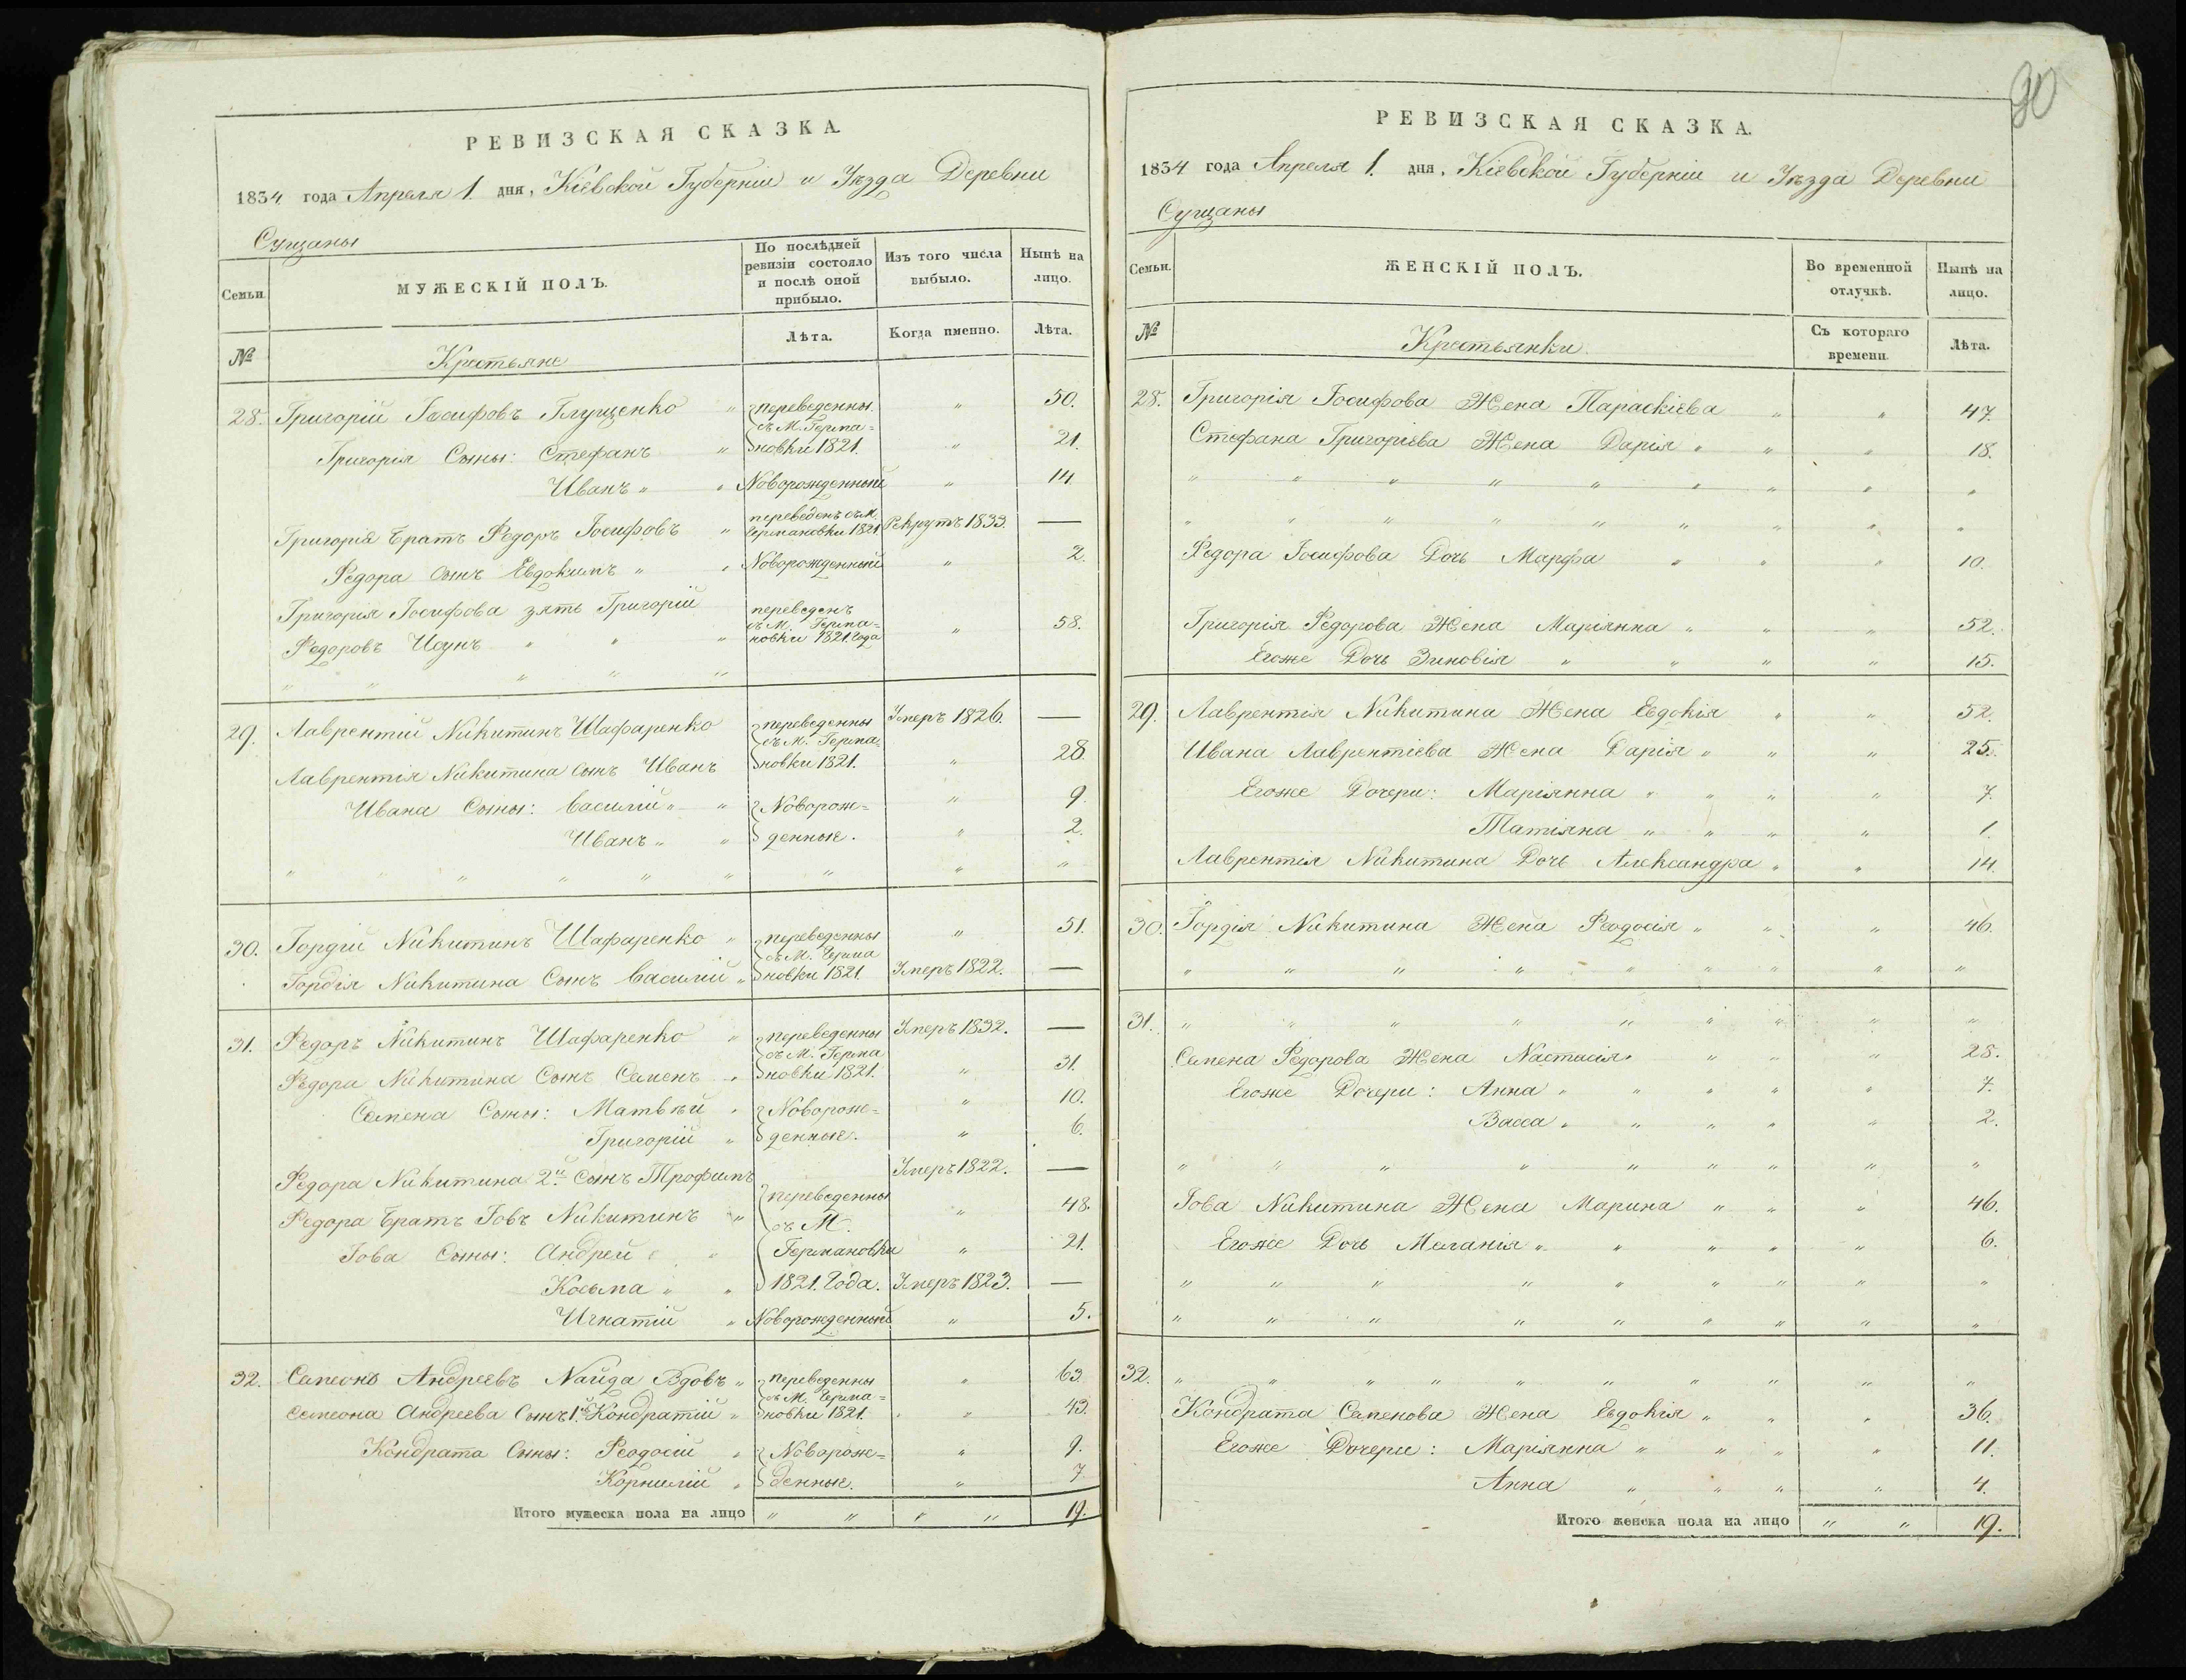 РЕВИЗСКАЯ СКАЗКА.
1834 года Апреля 1. дня, Кіевской Губерніи и Уѣзда Деревни
Сущаны
Семьи.
МУЖЕСКІЙ ПОЛЪ.
По послѣдней ревизіи состояло и послѣ оной прибыло.
Изъ того числа выбыло.
Нынѣ на лицо.
№
Крестьяне
Лѣта.
Когда именно.
Лѣта.
28. Григорій Іосифовъ Глущенко " переведенны " 50.
Григорія Сыны: Стефанъ " съ М. Германовки 1821. " 21.
Иванъ " " Новорожденный " 14.
Григорія Братъ Федоръ Іосифовъ " переведенъ съ М. Германовки 1821 Рекрутъ 1833. —
Федора сынъ Евдокимъ " " Новорожденный " 2.
Григорія Іосифова зять Григорій
Федоровъ " " переведенъ съ М. Германовки 1821. Года " 58.
" " " " "
29. Лаврентій Никитинъ Шафаренко переведенны Умеръ 1826. —
Лаврентія Никитина сынъ Иванъ съ М. Германовки 1821. " 28.
Ивана Сыны: Василій " " Новорож= " 9.
Иванъ " " денные. " 2.
" " " " " " " " "
30. Гордій Никитинъ Шафаренко " переведенны " 51.
Гордія Никитина Сынъ Василій " съ М. Германовки 1821. Умеръ 1822. —
31. Федоръ Никитинъ Шафаренко " переведенны Умеръ 1832. —
Федора Никитина Сынъ Семенъ " съ М. Германовки 1821. " 31.
Семена Сыны: Матвѣй " Новорож= " 10.
Григорій " денные. " 6.
Федора Никитина 2й Сынъ Трофимъ Умеръ 1822. —
Федора Братъ Іовъ Никитинъ " переведенны съ М. " 48.
Іова Сыны: Андрей " " Германовки " 21.
Косьма " " 1821. Года. Умеръ 1823. —
Игнатій " Новорожденный " 5.
32. Симеонъ Андреевъ Найда Вдовъ " переведенны " 63.
Симеона Андреева Сынъ 1й Кондратій " съ М. Германовки 1821. " 43.
Кондрата Сыны: Феодосій " Новорож= " 9.
Корнилій " денные. " 7.
Итого мужеска пола на лицо " " " " 19.
90
РЕВИЗСКАЯ СКАЗКА.
1834 года Апреля 1. дня, Кіевской Губерніи и Уѣзда Деревни
Сущаны
Семьи.
ЖЕНСКІЙ ПОЛЪ.
Во временной отлучкѣ.
Нынѣ на лицо.
№
Крестьянки.
Съ котораго времени.
Лѣта.
28. Григорія Іосифова Жена Параскіева " " 47.
Стефана Григоріева Жена Дарія " " " 18.
" " " " " " " " "
" " " " " " " " "
Федора Іосифова Дочь Марфа " " " 10.
Григорія Федорова Жена Маріянна " " " 52.
Егоже Дочь Зиновія " " " " 15.
29. Лаврентія Никитина Жена Евдокія " " 52.
Ивана Лаврентіева Жена Дарія " " " 25.
Егоже Дочери: Маріянна " " " " 7.
Татіяна " " " " 1.
Лаврентія Никитина Дочь Александра " " 14.
30. Гордія Никитина Жена Феодосія " " " 46.
" " " " " " " " "
31. " " " " " " " " "
Семена Федорова Жена Настасія " " " " 28.
Егоже Дочери: Анна " " " " " 7.
Васса " " " " " 2.
" " " " " " " " "
Іова Никитина Жена Марина " " " 46.
Егоже Дочь Меланія " " " " " 6.
" " " " " " " " "
" " " " " " " " "
32. " " " " " " " " " "
Кондрата Семенова Жена Евдокія " " " 36.
Егоже Дочери: Маріянна " " " " 11.
Анна " " " " 4.
Итого женска пола на лицо " " 19.